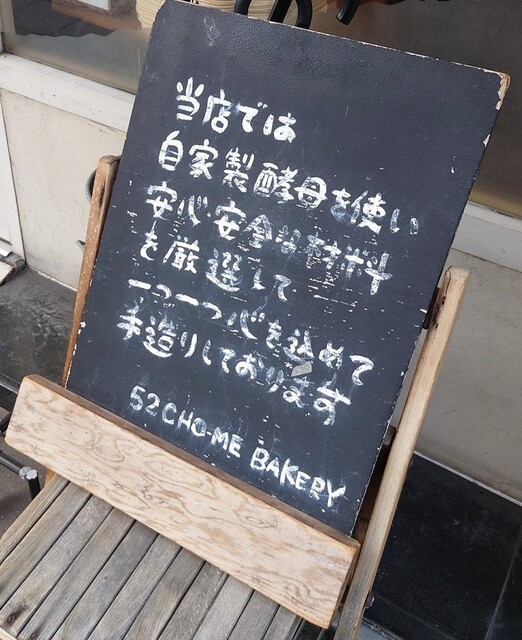 当店では
自家製酵母を使い
安心・安全な材料
を厳選して
一つ一つ心を込めて
手造りしております
52CHO-ME BAKERY